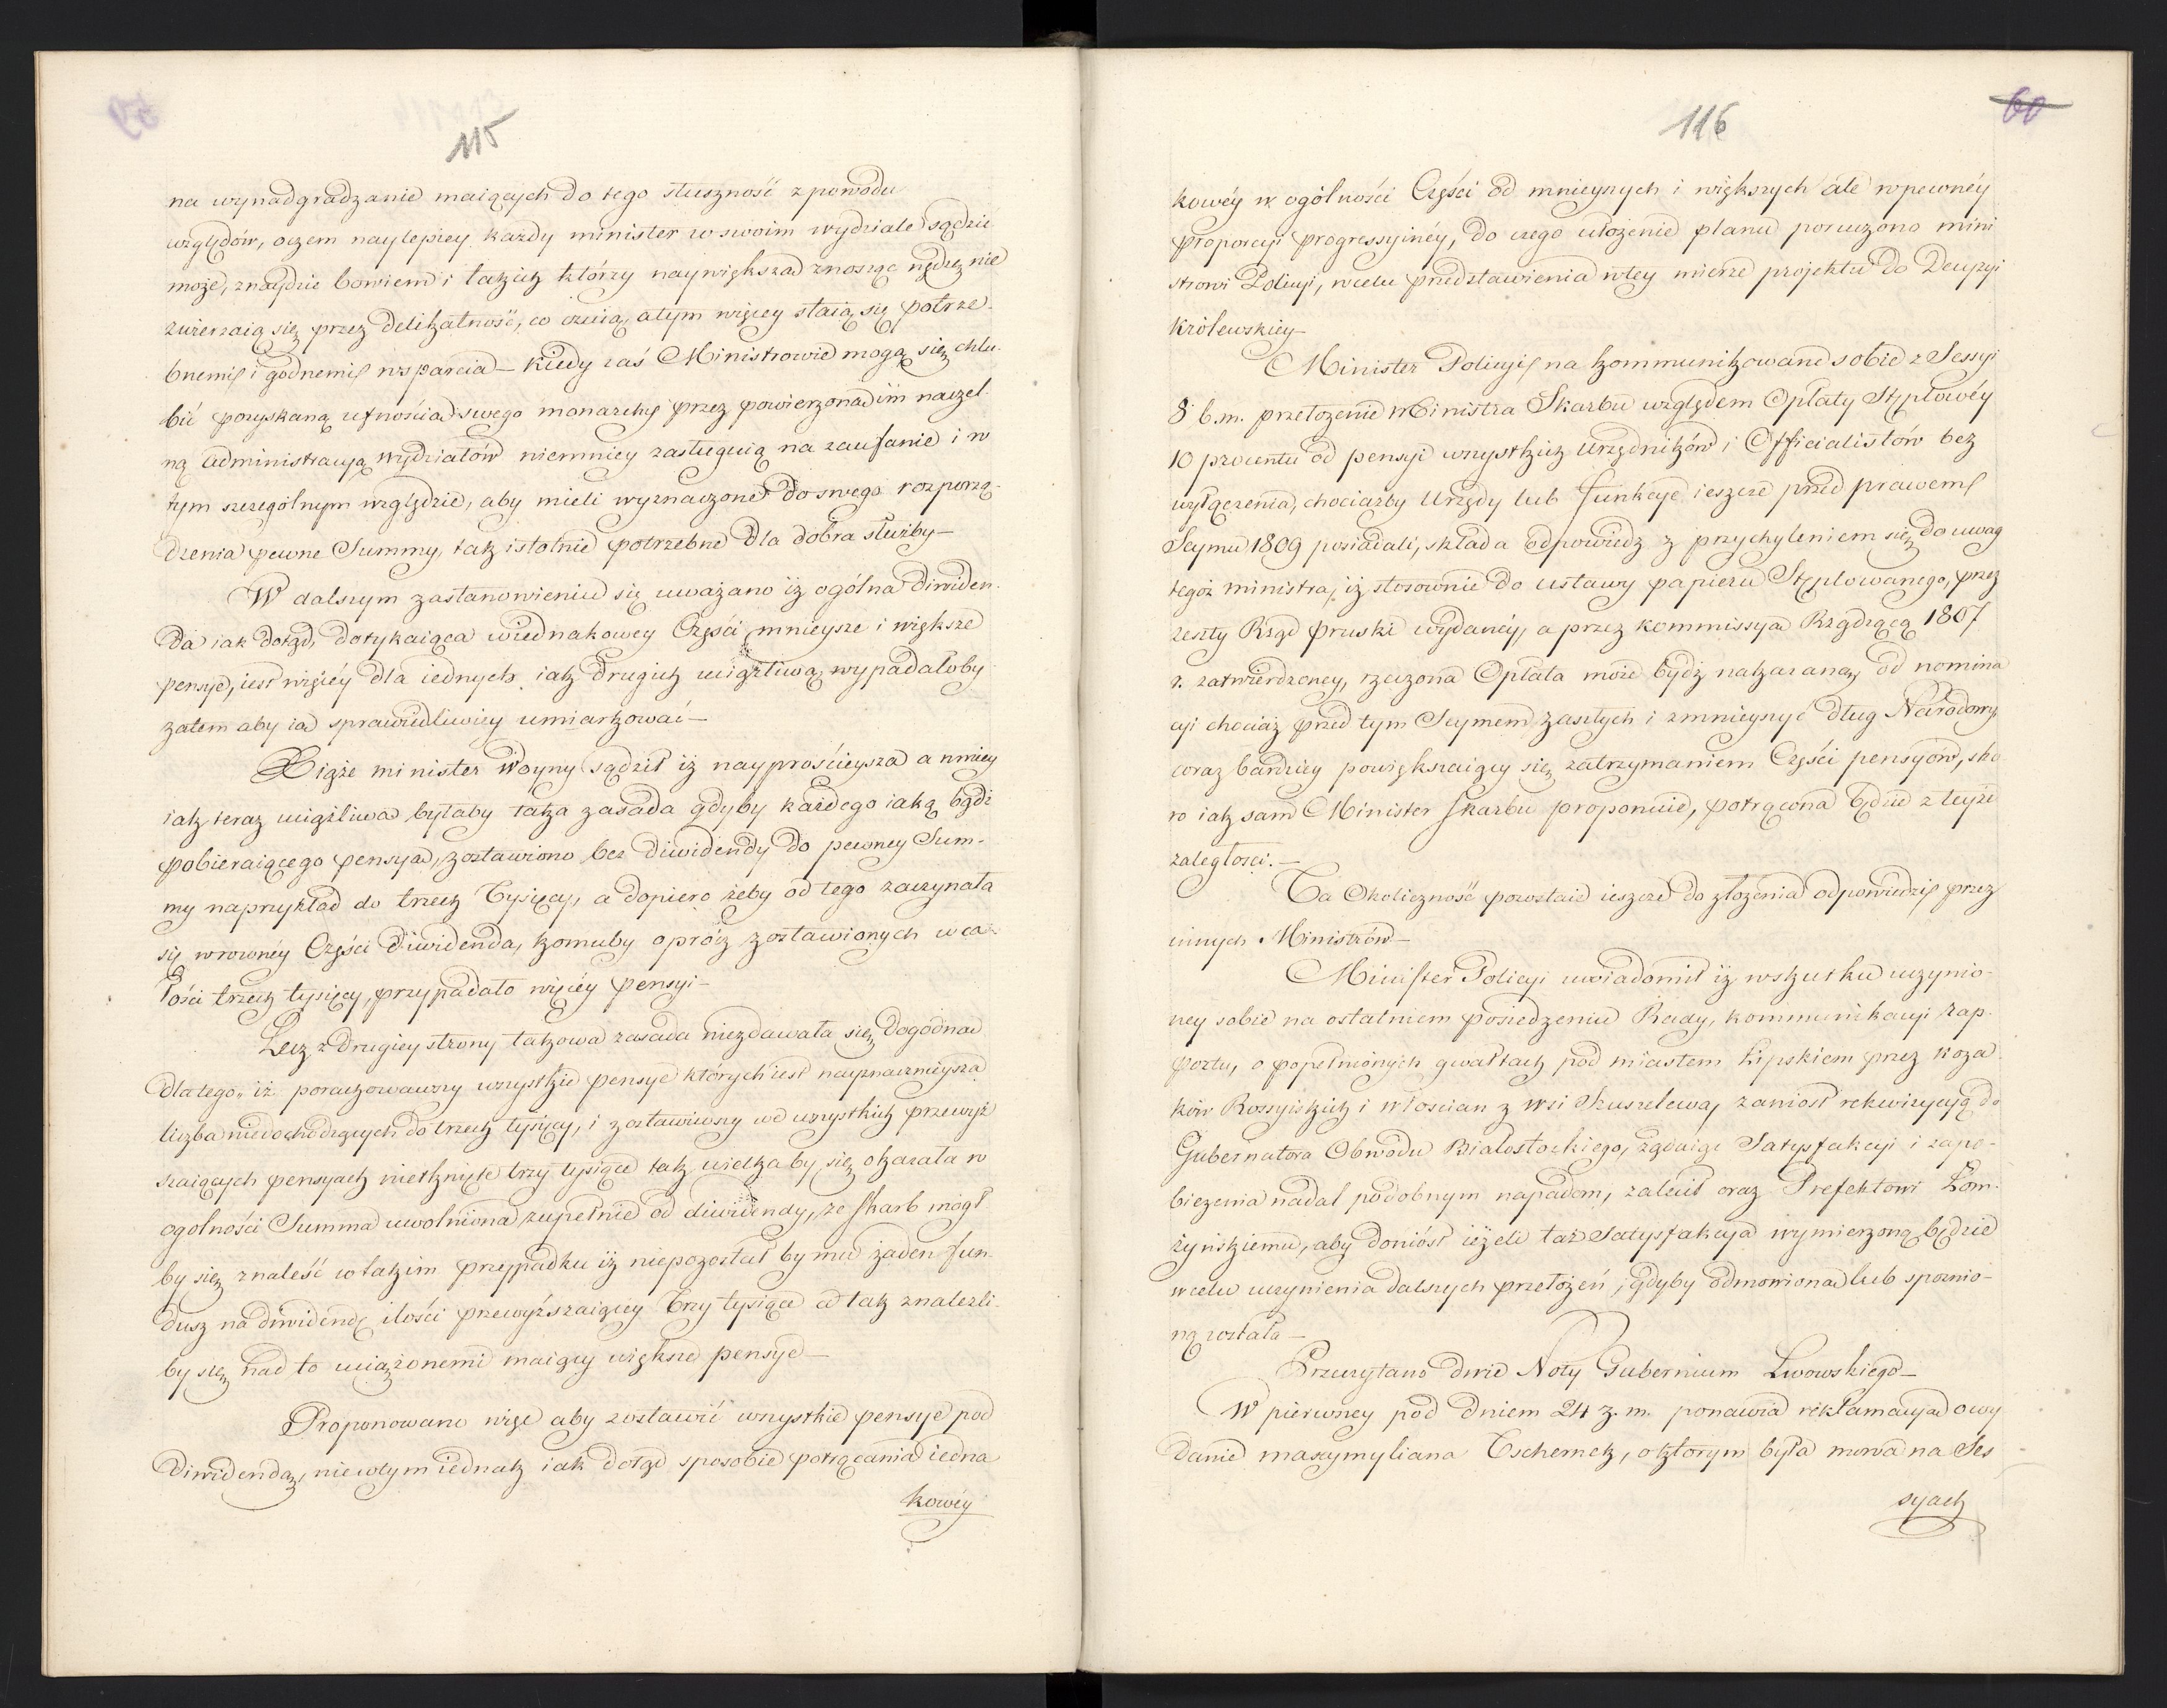 115
na wynadgradzanie maiących do tego słuszność z powodu
względów, oczem naylepiey każdy minister w swoim wydziale sądzić
może, znaydzie bowiem i takich którzy naywiększą znosząc nędzę nie
zwierzaią się przez delikatność, co czuią, a tym więcey staią się potrze-
bnemi i godnemi wsparcia — Kiedy zaś Ministrowie mogą się chlu-
bić pozyskaną ufnością swego monarchy przez powierzoną im naczel-
ną administracyą wydziałów niemniey zasługuią na zaufanie i w
tym szczególnym względzie, aby mieli wyznaczone do swego rozporzą-
dzenia pewne Summy, tak istotnie potrzebne dla dobra służby —
W dalszym zastanowieniu się uważano iż ogólna diwiden-
da iak dotąd, dotykaiąca w iednakowey Części mnieysze i większe
pensye, iest więcéy dla iednych iak drugich uciążliwą, wypadałoby
zatem aby ią sprawiedliwiey umiarkować —
Xiąże minister Woyny sądził iż nayprościeysza a mniey
iak teraz uciążliwa byłaby taka zasada gdyby każdego iaką bądź
pobieraiącego pensyą, zostawiono bez diwidendy do pewney Sum-
my naprzykład do trzech Tysięcy, a dopiero żeby od tego zaczynała
się w rowney Części diwidenda, komuby oprócz zostawionych w ca-
łości trzech tysięcy, przypadało więcéy pensyi —
Lecz z drugiey strony takowa zasada niezdawała się dogodną
dlatego, iż porachowawszy wszystkie pensye których iest nayznacznieysza
liczba niedochodzących do trzech tysięcy, i zostawiwszy we wszystkich przewyż-
szaiących pensyach nietknięte trzy tysiące tak wielka by się okazała w
ogolności Summa uwolniona zupełnie od diwidendy, że skarb mógł
by się znaleść w takim przypadku iż niepozostał by mu żaden fun-
dusz na diwidendę ilości przewyższaiącey Trzy tysiące a tak znalezli-
by się nad to uciążonemi maiący większe pensye —
Proponowano więc aby zostawić wszystkie pensye pod
Diwidendą, nie w tym iednak iak dotąd sposobie potrącania iedna
kowéy
116
60
kowéy w ogólności Części od mnieyszych i większych ale w pewnéy
proporcyi progressyinéy, do czego ułożenie planu poruczono mini
strowi Policyi, w celu przedstawienia w tey mierze projektu do Decyzyi
Królewskiey —
Minister Policyi na kommunikowane sobie z Sessyi
8 b.m. przełożenie Ministra Skarbu względem Opłaty Stęplowéy
10 procentu od pensyi wszystkich Urzędników i Officialistów bez
wyłączenia, chociażby Urzędy lub funkcye ieszcze przed prawem
Seymu 1809 posiadali, składa odpowiedz z przychyleniem się do uwag
tegoż ministra, iż stosownie do ustawy papieru Stęplowanego, przez
zeszły Rząd pruski wydanéy, a przez kommissyą Rządzącą 1807
r. zatwierdzoney, rzeczona Opłata może bydź nakazaną od nomina
cyi chociaż przed tym Seymem zaszłych i zmnieyszyć dług Narodowy
coraz bardziey powiększaiący się zatrzymaniem Części pensyów, sko-
ro iak sam Minister skarbu proponuie, potrącona będzie z teyże
zaległosci. —
Ta Okoliczność pozostaie ieszcze do złożenia odpowiedzi przez
innych Ministrów —
Minister Policyi uwiadomił iż w skutku uczynio-
ney sobie na ostatniem posiedzeniu Rady, kommunikacyi rap-
portu, o popełnionych gwałtach pod miastem Lipskiem przez Koza
ków Rossyiskich i włoscian z wsi Szuszalewa, zaniosł rekwizycyią do
Gubernatora Obwodu Białostockiego, żądaiąc Satysfakcyi i zapo-
bieżenia nadal podobnym napadom, zalecił oraz Prefektowi Łom-
żyńskiemu, aby doniósł ieżeli taż Satysfakcya wymierzoną będzie
w celu uczynienia dalszych przełożeń, gdyby odmowioną lub spoznio-
ną została —
Przeczytano dwie Noty Gubernium Lwowskiego —
W pierwszey pod dniem 24 z. m. ponawia reklamacyą o wy
danie maxymyliana Tschernek, o którym była mowa na Ses
syach